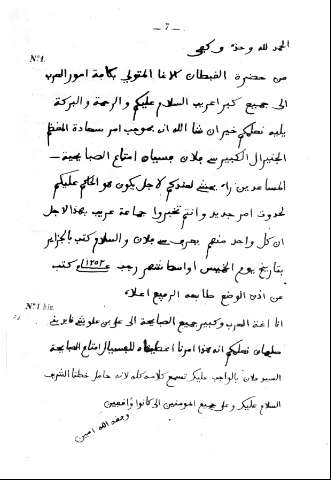 — 7 —
الحمد لله وحده وكفى
Nº 1.
من حضرة القبطان كلاغا المتولي بكامة امور العرب
الى جميع كبراء عريب السلام عليكم والرحمة والبركة
يليه نعلمكم خير ان شا الله انه بموجب امر سعادة المعظم
الجنيرال الكبير سي بلان بسيان امتاع الصبايحية
المساعدين راه يمشي لعندكم لاجل يكون هو الحاكم عليكم
لحدوث امر جديد وانتم تخبروا جماعة عريب بهذا لاجل
ان كل واحد منهم يعرف سي بلان والسلام كتب بالجزاير
بتاريخ يوم الخميس اواسط شهر رجب ١٢٥٣ كتب
عن اذن الواضع طابعه الرفيع اعلاه
Nº 1 bis.
انا اغة العرب وكبير جميع الصبايحية الى علي بن
نعلمكم انه هذا امرنا امتاع الصبايحة
السيو بلان بالواجب عليك تسمع كلامه كله لانه حامل خطنا الشريف
السلام عليكم وعلى جميع المومنين الى كانوا واقفين
وفقه الله امين